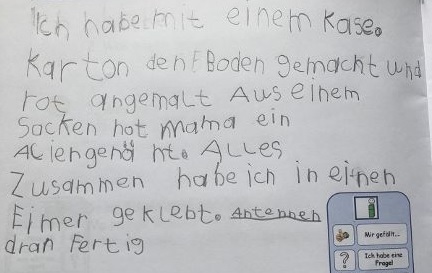 Ich habe mit einem Kase.
Karton den Boden gemacht und
rot angemalt Aus einem
Socken hot Mama ein
ACiengenä ht. ALLes
Zusammen habe ich in einen
Eimer geklebt. Antennen
dran Fertig
Mir gefällt...
Ich habe eine
Frage!